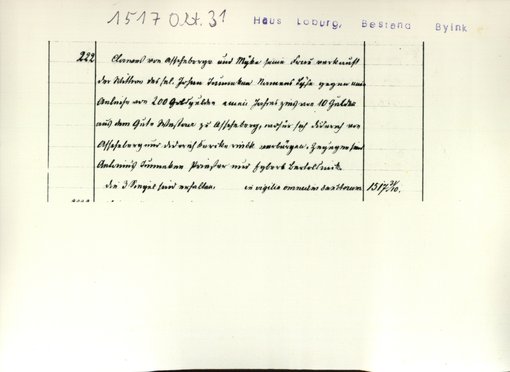 1517 Okt. 31
Haus Loburg, Bestand Byink
222
Clawes von Asscheberge und Myke seine Frau verkauft
der Wittwe des sel. Johan Tunneken Namens Lyse gegen eine
Anleihe von 200 Goldgulden einen Jahreszins von 10 Gulden
aus dem Gute zu Asscheberg, wofür sich Diderich von
Asscheberg und Diderich verbürgen. Zeugen sind
Antonius Tunneken Priester und Egbert
die 3 Siegel sind erhalten. in vigilia omnium sanctorum 1517 31/10.